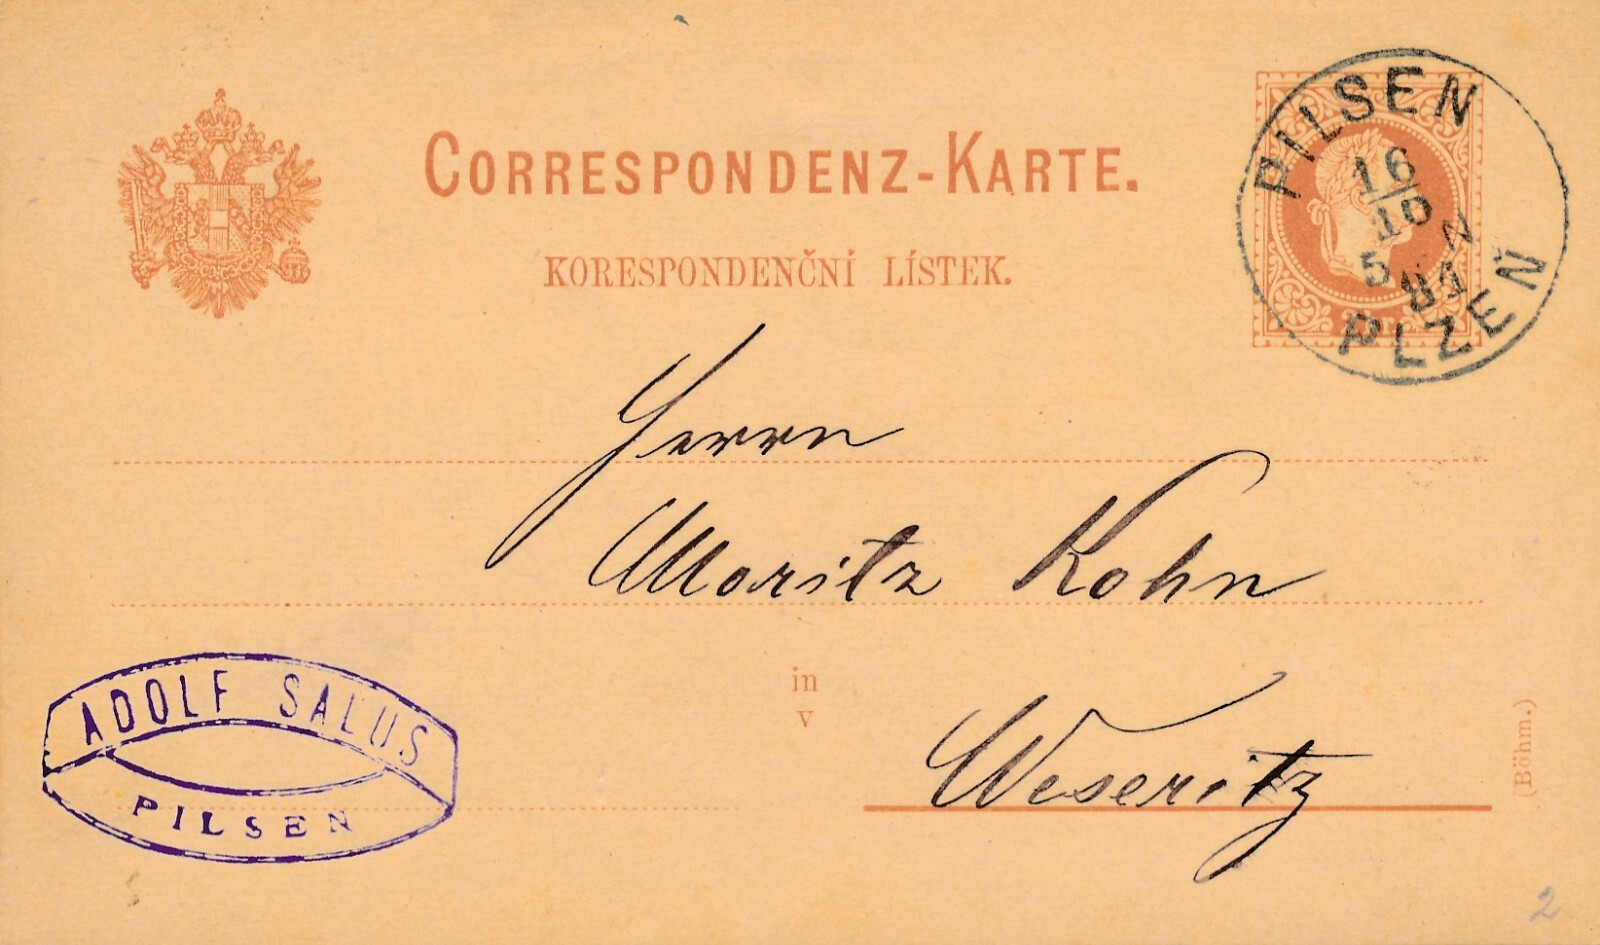 CORRESPONDENZ-KARTE.
KORESPONDENČNÍ LÍSTEK.
PILSEN
16
10
5 N
81
PLZEŇ
Herrn
Moritz Kohn
in
v
Weseritz
(Böhm.)
ADOLF SALUS
PILSEN
2